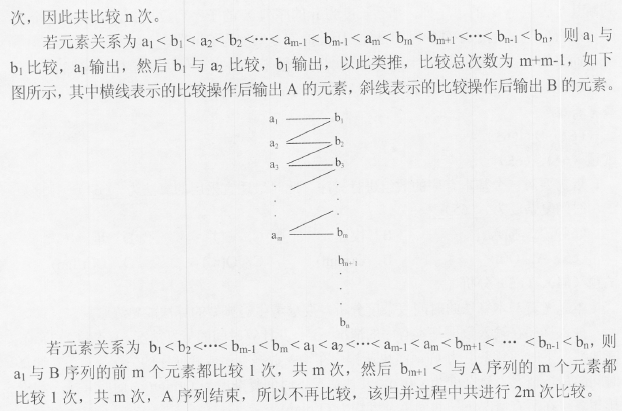 次，因此共比较 n 次。
若元素关系为 a₁ < b₁ < a₂ < b₂ <···< aₘ₋₁ < bₘ₋₁ < aₘ < bₘ < bₘ₊₁ <···< bₙ₋₁ < bₙ，则 a₁ 与
b₁ 比较，a₁ 输出，然后 b₁ 与 a₂ 比较，b₁ 输出，以此类推，比较总次数为 m+m-1，如下
图所示，其中横线表示的比较操作后输出 A 的元素，斜线表示的比较操作后输出 B 的元素。
a₁ b₁
a₂ b₂
a₃ b₃
aₘ bₘ
bₘ₊₁
bₙ
若元素关系为 b₁ < b₂ <···< bₘ₋₁ < bₘ < a₁ < a₂ <···< aₘ₋₁ < aₘ < bₘ₊₁ < ··· < bₙ₋₁ < bₙ，则
a₁ 与 B 序列的前 m 个元素都比较 1 次，共 m 次，然后 bₘ₊₁ < 与 A 序列的 m 个元素都
比较 1 次，共 m 次，A 序列结束，所以不再比较，该归并过程中共进行 2m 次比较。